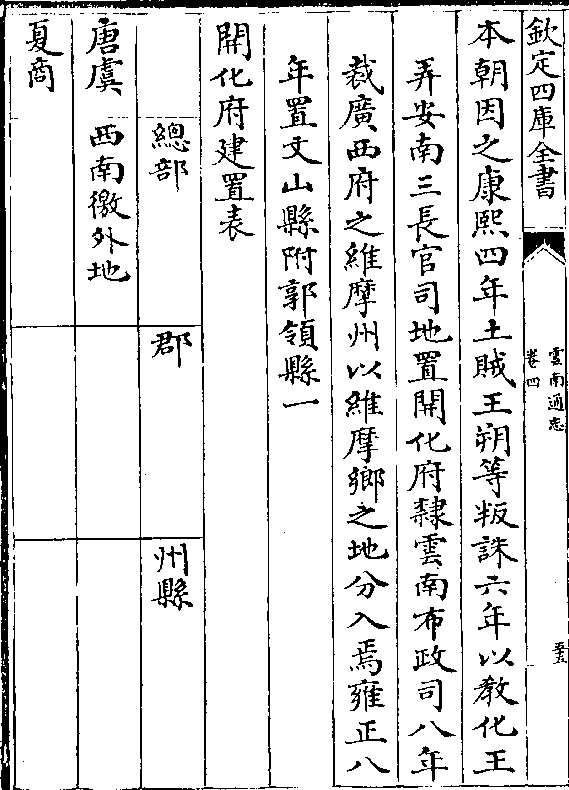 欽定四庫全書
雲南通志
卷四
至五
本朝因之康熙四年土賊王朔等叛誅六年以教化王
弄安南三長官司地置開化府隸雲南布政司八年
裁廣西府之維摩州以維摩鄉之地分入焉雍正八
年置文山縣附郭領縣一
開化府建置表
總部 郡 州縣
唐虞 西南徼外地
夏商